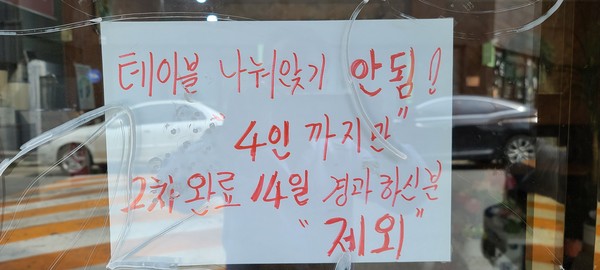 테이블 나눠앉기 안됨!
4인 까지만"
2차 완료 14일 경과 하신분
"제외"